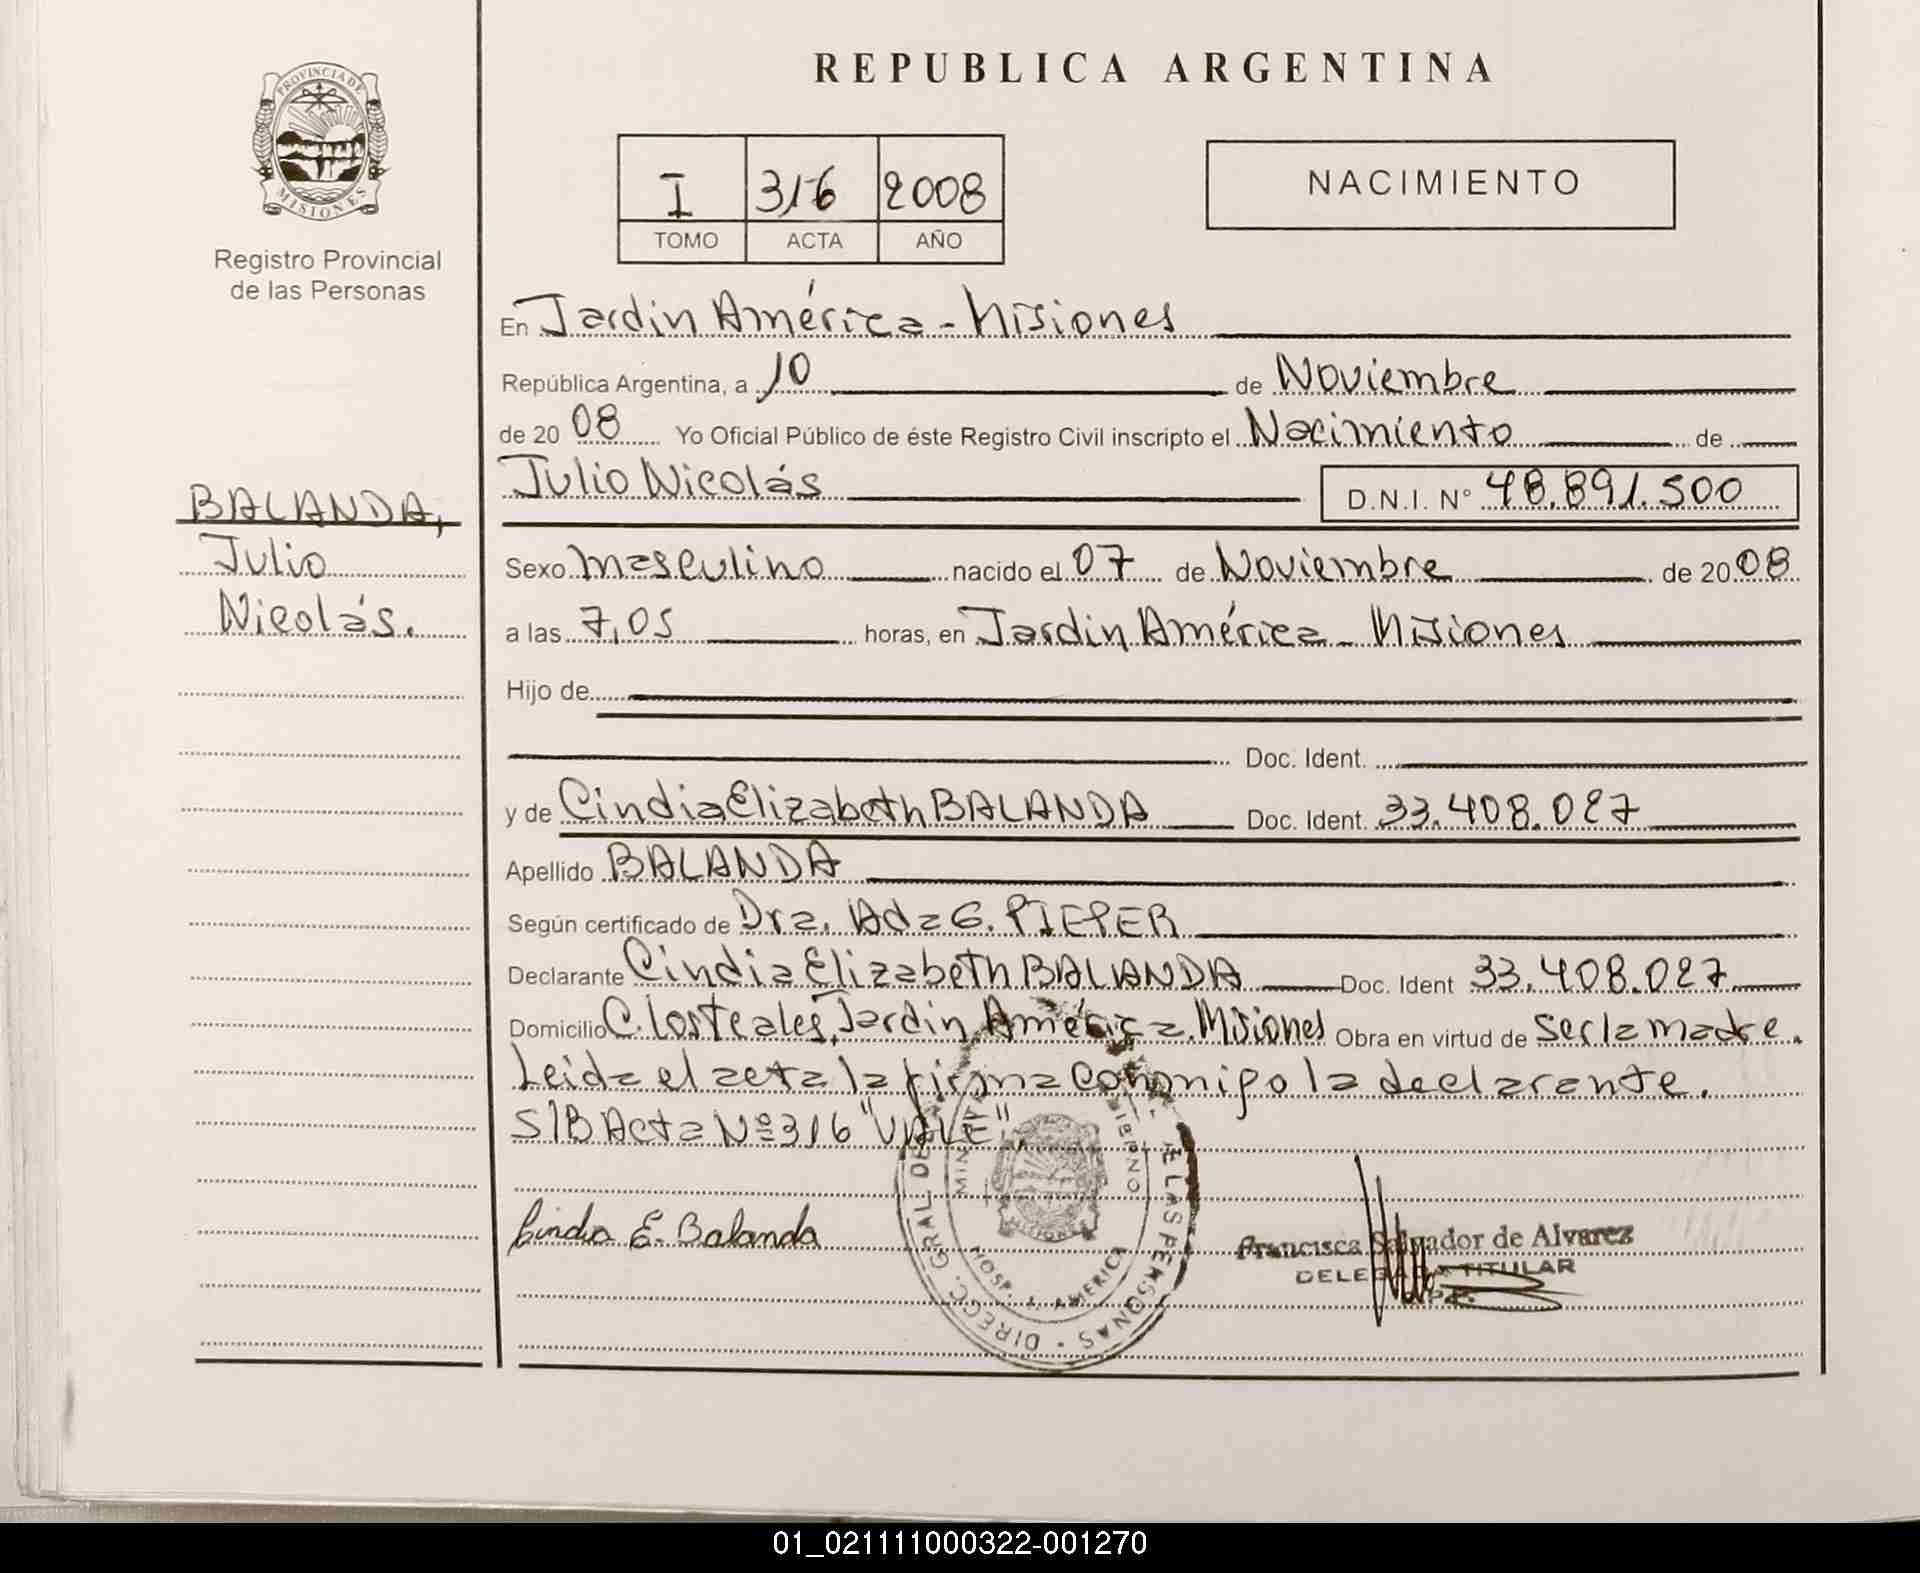 REPUBLICA ARGENTINA
PROVINCIA DE MISIONES
Registro Provincial
de las Personas
I 316 2008
TOMO ACTA AÑO
NACIMIENTO
En Jardin América - Misiones
República Argentina, a 10 de Noviembre
de 20 08 Yo Oficial Público de éste Registro Civil inscripto el Nacimiento de
Julio Nicolás D.N.I. N° 48.891.500
BALANDA,
Julio
Nicolás.
Sexo Masculino nacido el 07 de Noviembre de 20 08
a las 7,05 horas, en Jardin América - Misiones
Hijo de
Doc. Ident.
y de Cindia Elizabeth BALANDA Doc. Ident. 33.408.027
Apellido BALANDA
Según certificado de Dra. Ada G. PIEPER
Declarante Cindia Elizabeth BALANDA Doc. Ident 33.408.027
Domicilio C. los Teales, Jardin América. Misiones Obra en virtud de ser la madre.
Leida el acta la firma conmigo la declarante.
S/B Acta Nº 316 "VALE"
Cindia E. Balanda
DIRECC. GRAL DE LAS PERSONAS
HOSP. J. AMERICA
MISIONES
Francisca Salvador de Alvarez
DELEGADA TITULAR
01_021111000322-001270